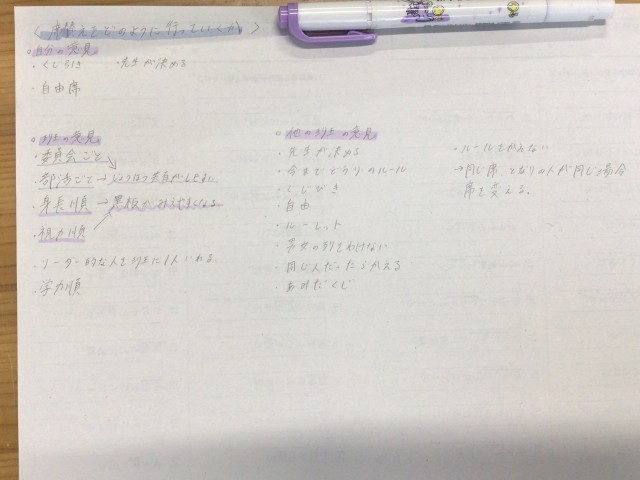 〈席替えをどのように行っていくか〉
○自分の意見
・くじ引き ・先生が決める
・自由席
○班の意見
・委員会ごと
・部活ごと→じょうほう共有がしやすい
・身長順→黒板がみえやすくなる
・視力順
・リーダー的な人を班に1人いれる
・学力順
○他の班の意見
・先生が決める
・今までどうりのルール
・くじびき
・自由
・ルーレット
・男女の列をわけない
・同じ人だったらかえる
・あみだくじ
・ルールをかえない
→同じ席、となりの人が同じ場合
席を変える。